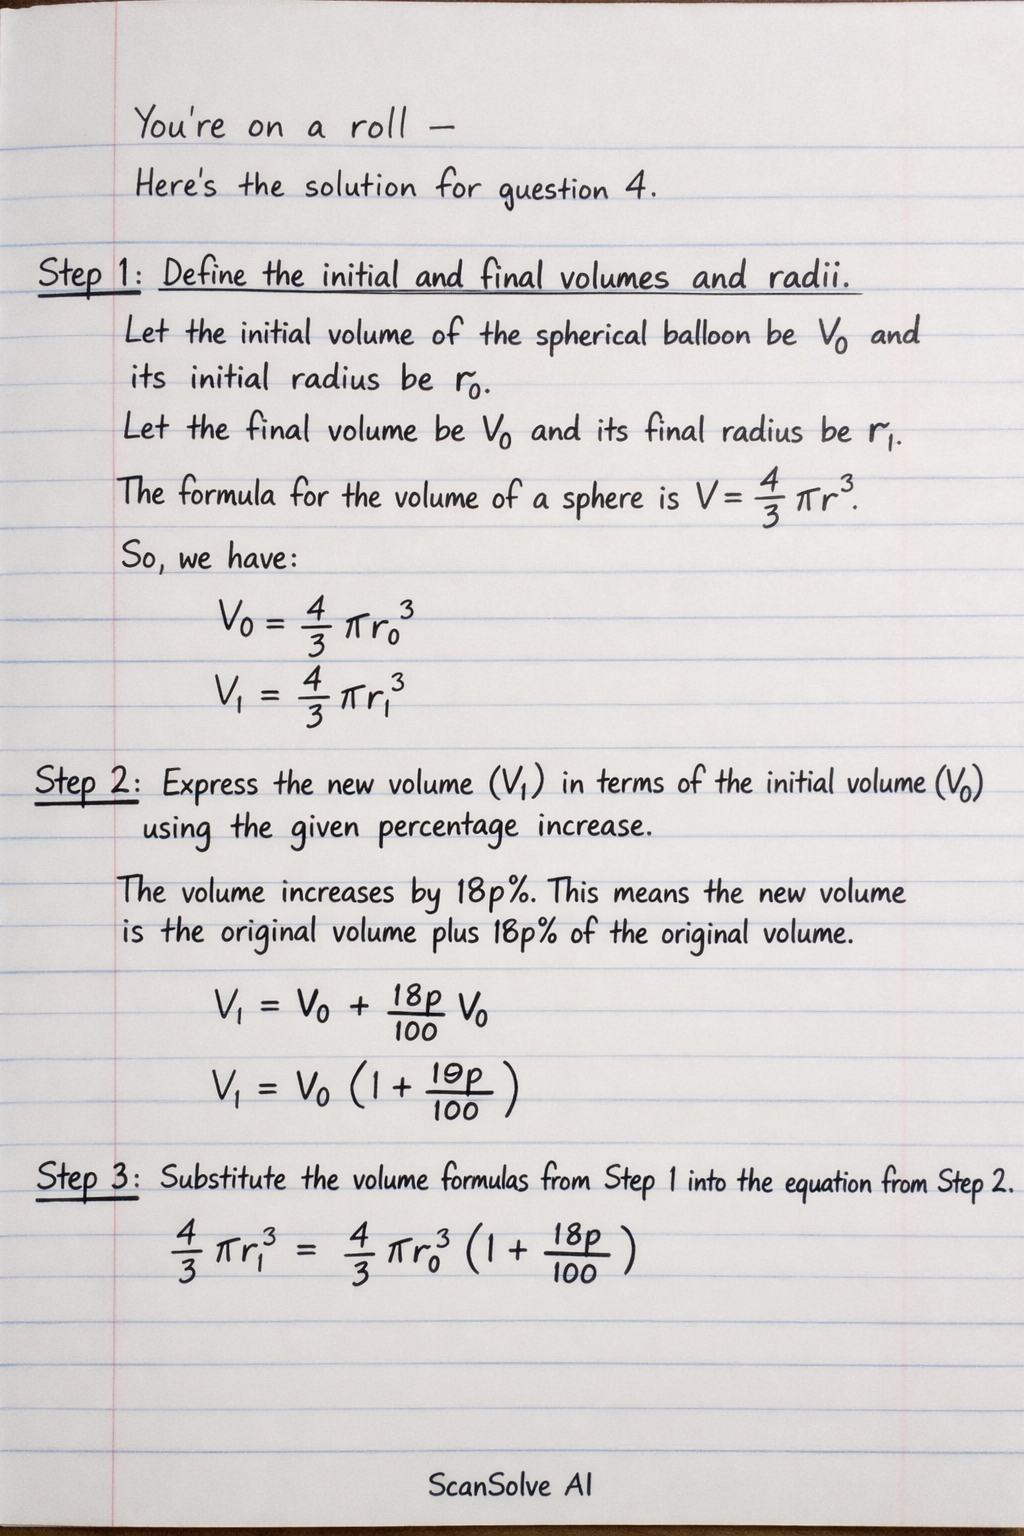 You're on a roll —
Here's the solution for question 4.
Step 1: Define the initial and final volumes and radii.
Let the initial volume of the spherical balloon be V₀ and
its initial radius be r₀.
Let the final volume be V₀ and its final radius be r₁.
The formula for the volume of a sphere is V = 4/3 πr³.
So, we have:
V₀ = 4/3 πr₀³
V₁ = 4/3 πr₁³
Step 2: Express the new volume (V₁) in terms of the initial volume (V₀)
using the given percentage increase.
The volume increases by 18p%. This means the new volume
is the original volume plus 18p% of the original volume.
V₁ = V₀ + 18p/100 V₀
V₁ = V₀ (1 + 19p/100)
Step 3: Substitute the volume formulas from Step 1 into the equation from Step 2.
4/3 πr₁³ = 4/3 πr₀³ (1 + 18p/100)
ScanSolve AI